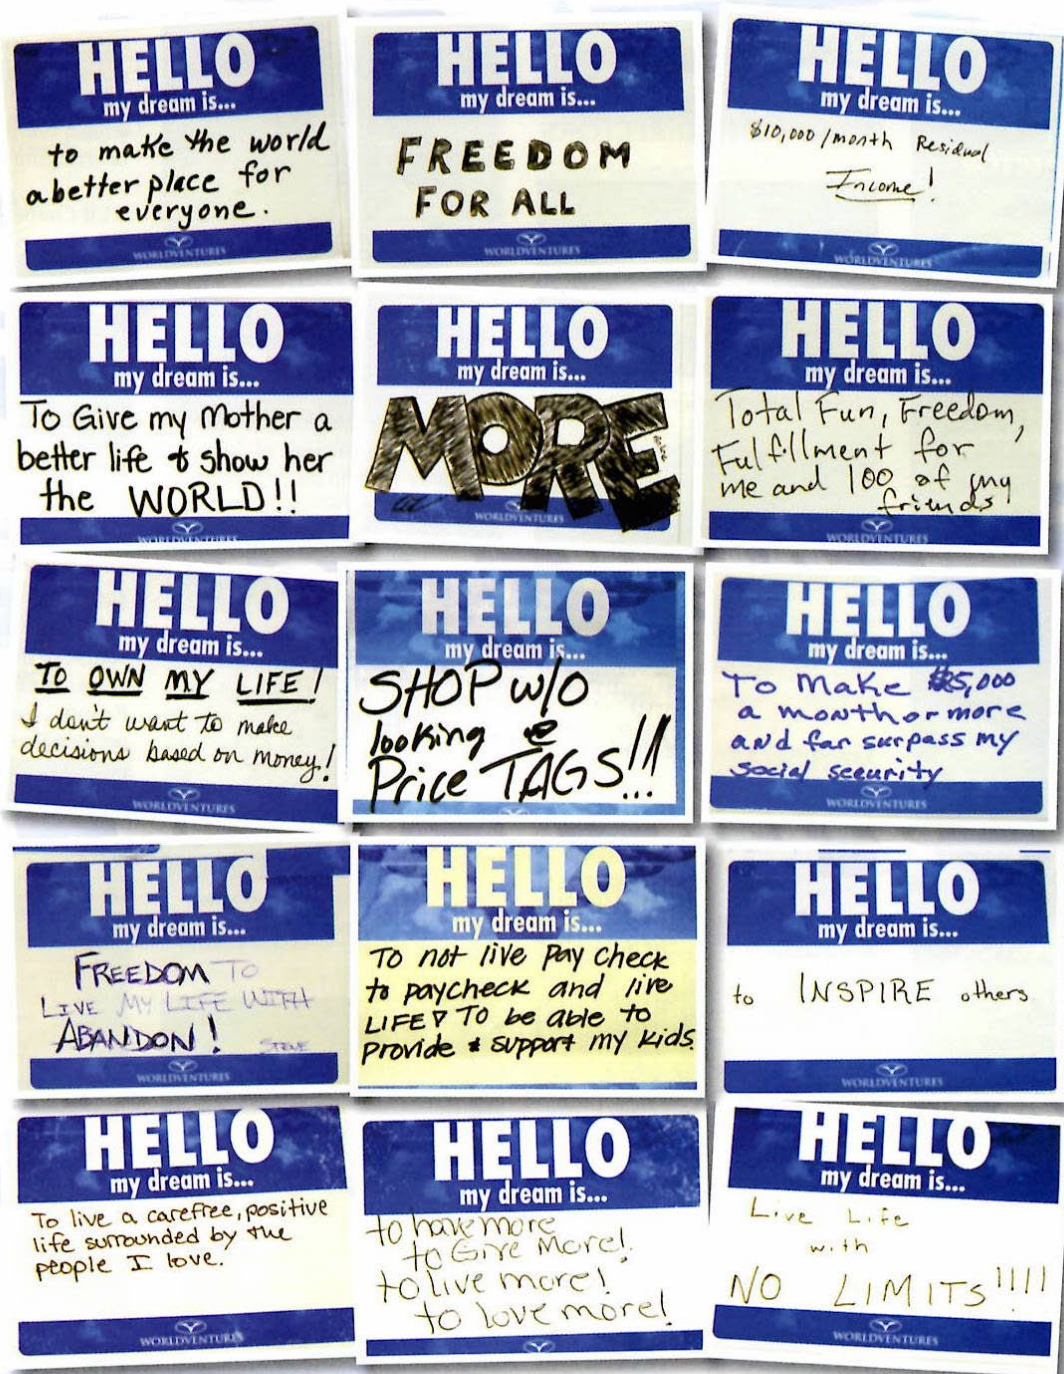 HELLO
my dream is...
to make the world
a better place for
everyone.
WORLDVENTURES
HELLO
my dream is...
FREEDOM
FOR ALL
WORLDVENTURES
HELLO
my dream is...
$10,000/month Residual
Income!
WORLDVENTURES
HELLO
my dream is...
To Give my Mother a
better life & show her
the WORLD!!
WORLDVENTURES
HELLO
my dream is...
MORE
WORLDVENTURES
HELLO
my dream is...
Total Fun, Freedom,
Fulfillment for
me and 100 of my
friends
WORLDVENTURES
HELLO
my dream is...
TO OWN MY LIFE!
I don't want to make
decisions based on money!
WORLDVENTURES
HELLO
my dream is...
SHOP w/o
looking @
Price TAGS!!!
HELLO
my dream is...
To Make $5,000
a month or more
and far surpass my
social security
WORLDVENTURES
HELLO
my dream is...
FREEDOM TO
LIVE MY LIFE WITH
ABANDON!
STEVE
WORLDVENTURES
HELLO
my dream is...
To not live Pay Check
to paycheck and live
LIFE! To be able to
provide & support my kids.
HELLO
my dream is...
to INSPIRE others
WORLDVENTURES
HELLO
my dream is...
To live a carefree, positive
life surrounded by the
people I love.
WORLDVENTURES
HELLO
my dream is...
to have more
to Give More!
to live more!
to love more!
HELLO
my dream is...
Live Life
with
NO LIMITS!!!!
WORLDVENTURES